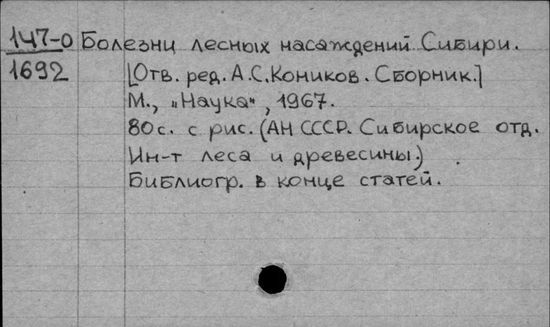 147-0 Болезни лесных насаждений Сибири.
1692 [Отв. ред. А.С.Коников. Сборник.]
М., "Наука", 1967.
80с. с рис. (АН СССР. Сибирское отд.
Ин-т леса и древесины.)
Библиогр. в конце статей.